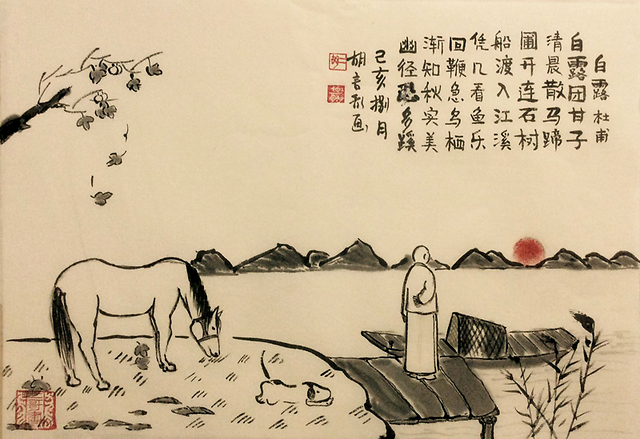 白露 杜甫
白露团甘子
清晨散马蹄
圃开连石树
船渡入江溪
凭几看鱼乐
回鞭急鸟栖
渐知秋实美
幽径恐多蹊
己亥捌月
胡言画